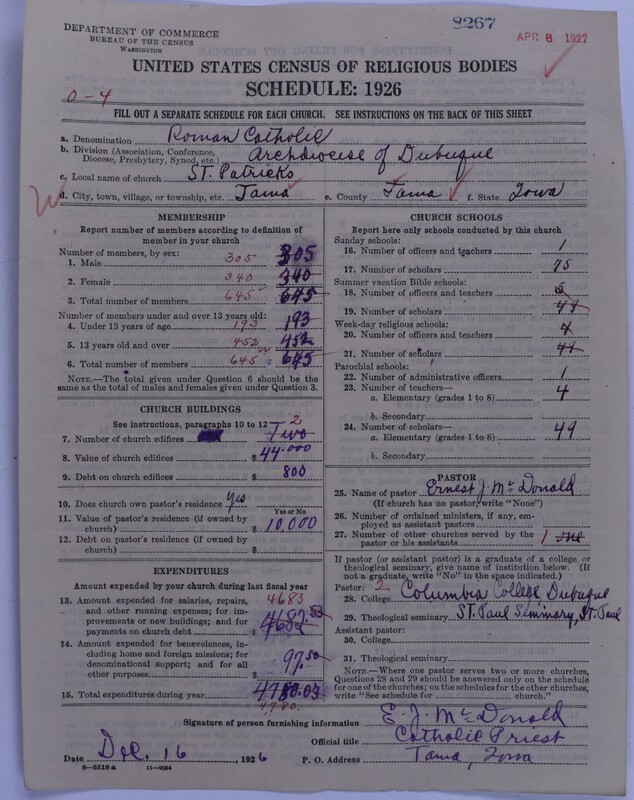 8267
APR 6 1927
DEPARTMENT OF COMMERCE
BUREAU OF THE CENSUS
WASHINGTON
UNITED STATES CENSUS OF RELIGIOUS BODIES
SCHEDULE: 1926
0-4
FILL OUT A SEPARATE SCHEDULE FOR EACH CHURCH. SEE INSTRUCTIONS ON THE BACK OF THIS SHEET
a. Denomination Roman Catholic
b. Division (Association, Conference, Diocese, Presbytery, Synod, etc.) Archdiocese of Dubuque
c. Local name of church ST. Patricks
d. City, town, village, or township, etc. Tama e. County Tama f. State Iowa
MEMBERSHIP
Report number of members according to definition of
member in your church
Number of members, by sex:
1. Male 305 305
2. Female 340 340
3. Total number of members 645 645
Number of members under and over 13 years old:
4. Under 13 years of age 193 193
5. 13 years old and over 452 452
6. Total number of members 645 645
NOTE.—The total given under Question 6 should be
the same as the total of males and females given under Question 3.
CHURCH BUILDINGS
See instructions, paragraphs 10 to 12 2
7. Number of church edifices Two
8. Value of church edifices $ 44.000
9. Debt on church edifices $ 800
10. Does church own pastor's residence? yes
Yes or No
11. Value of pastor's residence (if owned by
church) $ 10,000
12. Debt on pastor's residence (if owned by
church) $
EXPENDITURES
Amount expended by your church during last fiscal year
13. Amount expended for salaries, repairs, 4683
and other running expenses; for im-
provements or new buildings; and for
payments on church debt $ 4682.53
14. Amount expended for benevolences,
including home and foreign missions; for
denominational support; and for all
other purposes $ 97.50
15. Total expenditures during year $ 4780.03
4780.
CHURCH SCHOOLS
Report here only schools conducted by this church
Sunday schools:
16. Number of officers and teachers 1
17. Number of scholars 75
Summer vacation Bible schools:
18. Number of officers and teachers
19. Number of scholars
Week-day religious schools:
20. Number of officers and teachers 4
21. Number of scholars
Parochial schools:
22. Number of administrative officers 1
23. Number of teachers—
a. Elementary (grades 1 to 8) 4
b. Secondary
24. Number of scholars—
a. Elementary (grades 1 to 8) 49
b. Secondary
PASTOR
25. Name of pastor Ernest J. McDonald
(If church has no pastor, write "None")
26. Number of ordained ministers, if any, em-
ployed as assistant pastors
27. Number of other churches served by the
pastor or his assistants 1 one
If pastor (or assistant pastor) is a graduate of a college or
theological seminary, give name of institution below. (If
not a graduate, write "No" in the space indicated.)
Pastor: 2
28. College Columbia College Dubuque
29. Theological seminary ST. Paul Seminary, ST. Paul
Assistant pastor:
30. College
31. Theological seminary
NOTE.—Where one pastor serves two or more churches,
Questions 28 and 29 should be answered only on the schedule
for one of the churches; on the schedules for the other churches,
write "See schedule for church."
Signature of person furnishing information E. J. McDonald
Official title Catholic Priest
Date Dec. 16, 1926 P. O. Address Tama, Iowa
8—5518 a 11—9264